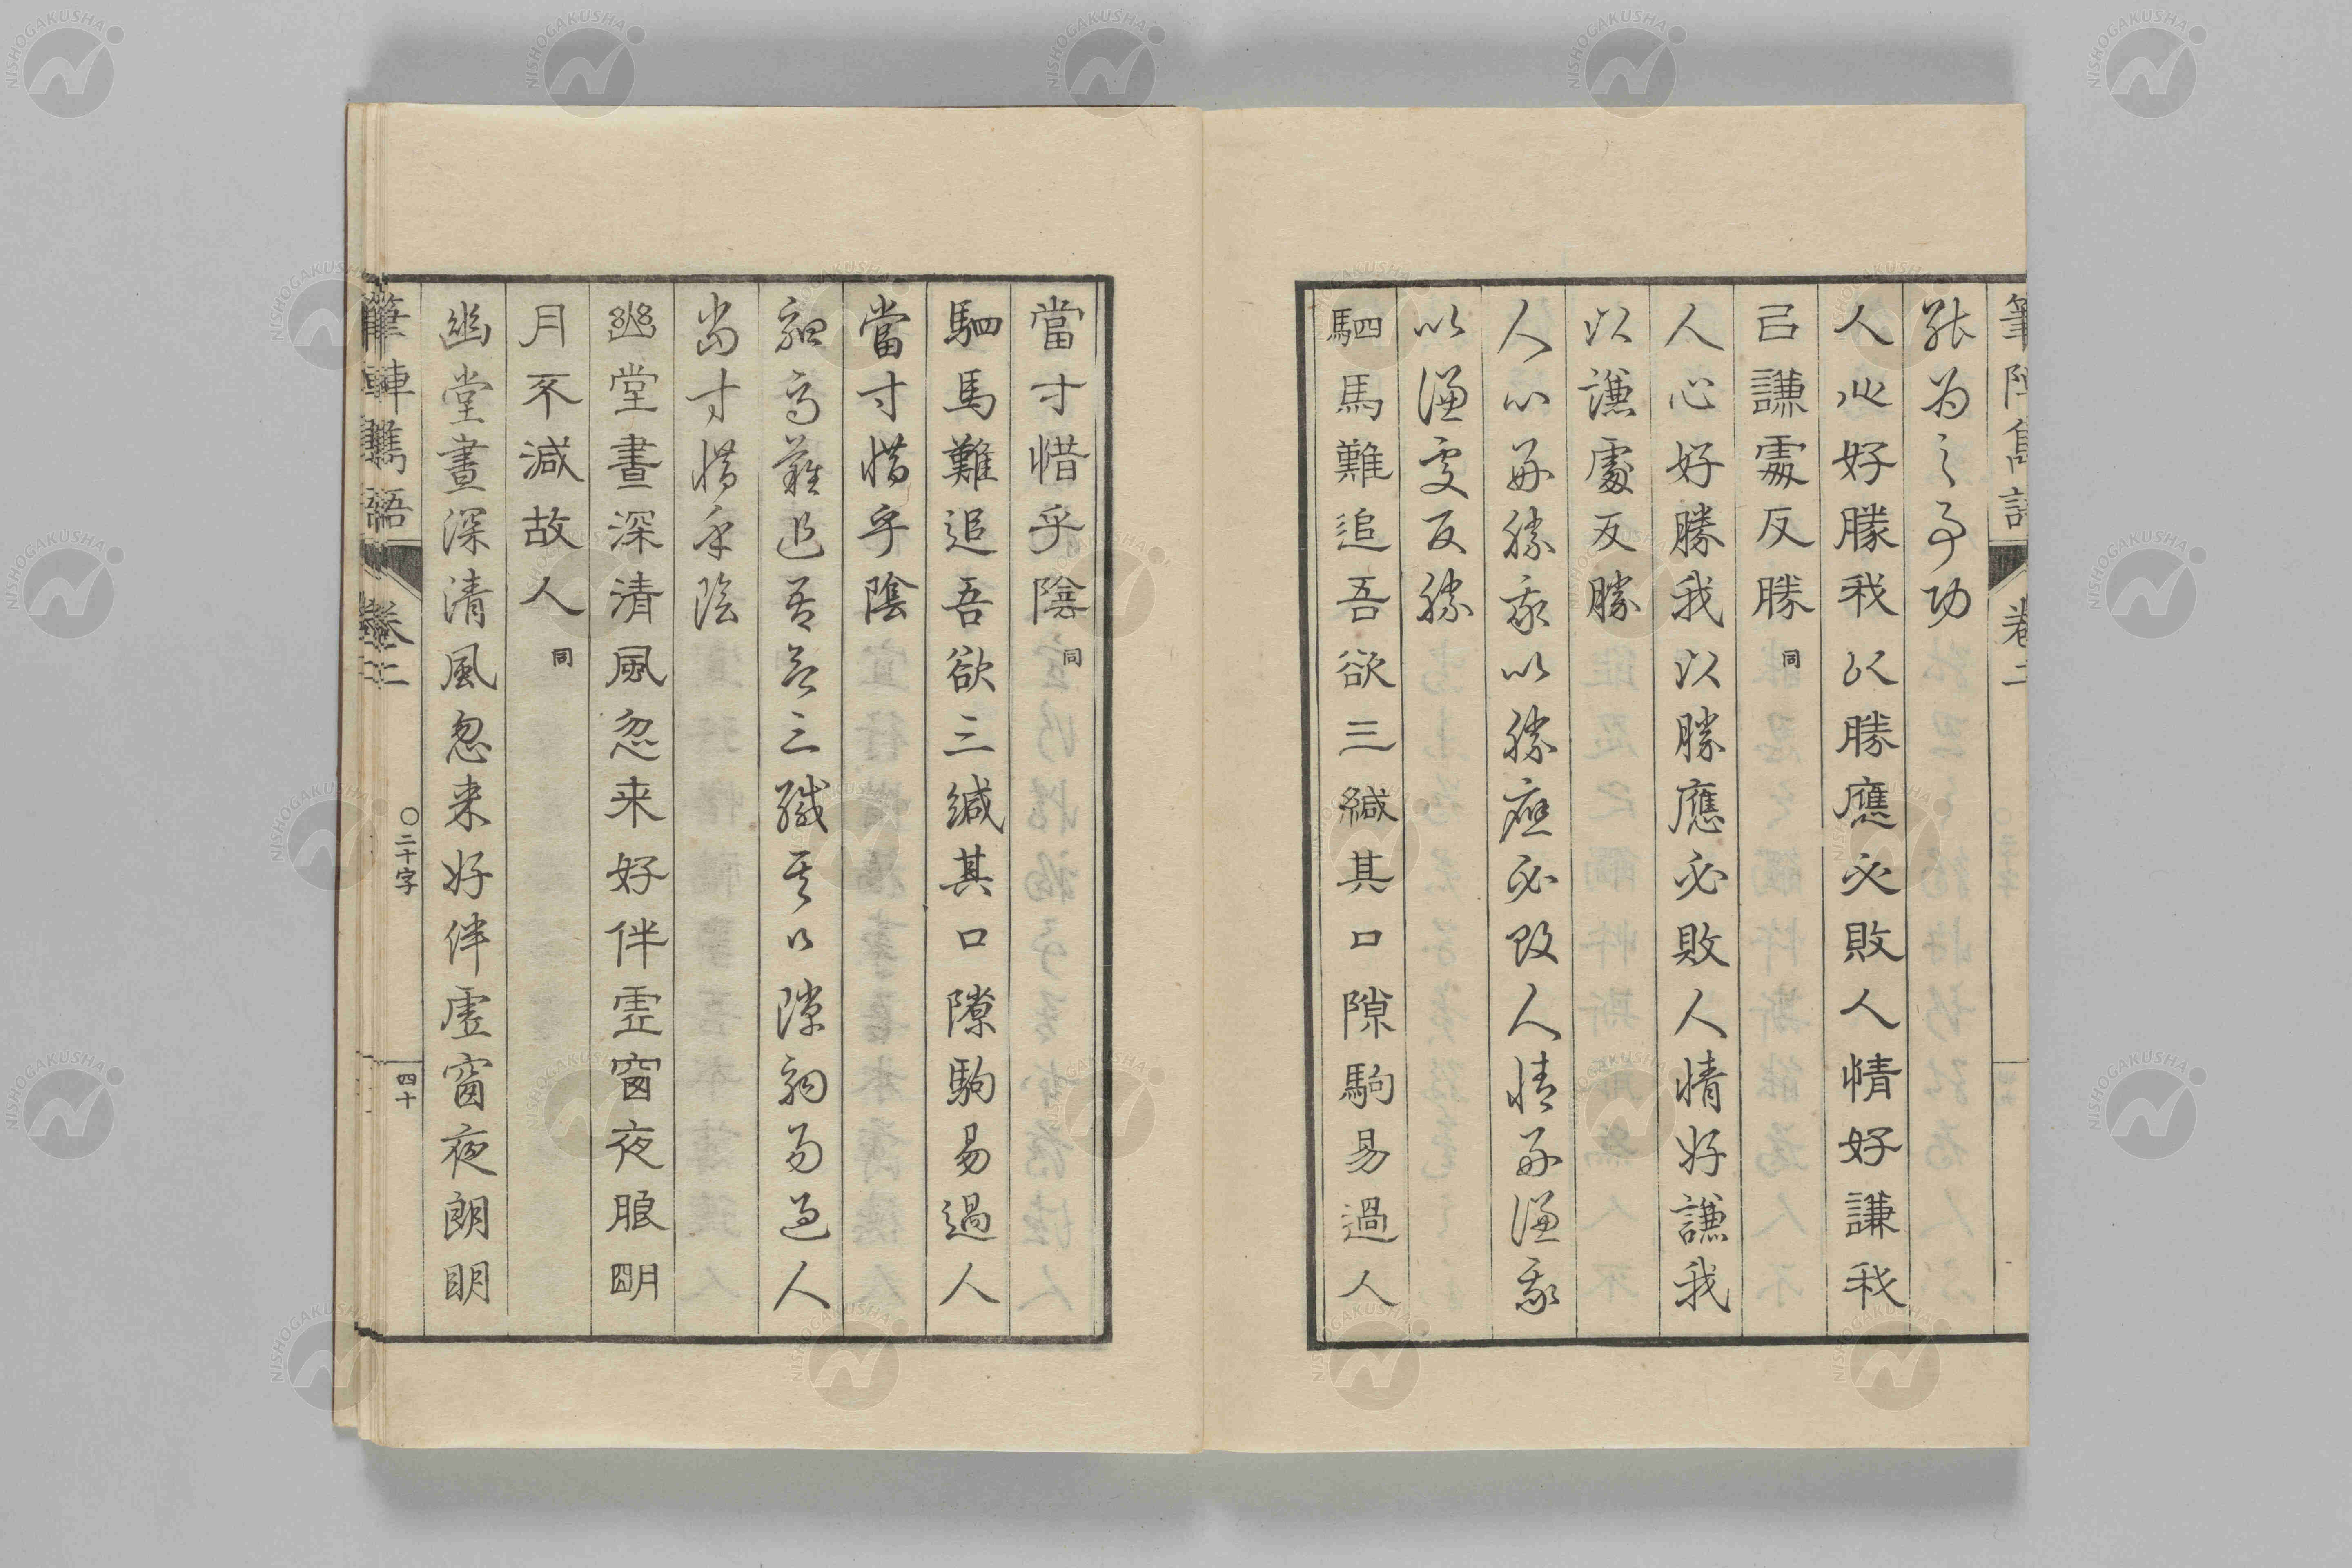 筆陣雋語 卷二
能為之事功
人心好勝我以勝應必敗人情好謙我
己謙處反勝 同
人心好勝我以勝應必敗人情好謙我
以謙處反勝
人心好勝我以勝應必敗人情好謙我
以謙處反勝
駟馬難追吾欲三緘其口隙駒易過人
當寸惜乎陰 同
駟馬難追吾欲三緘其口隙駒易過人
當寸惜乎陰
駟馬難追吾欲三緘其口隙駒易過人
當寸惜乎陰
幽堂晝深清風忽来好伴虛窗夜朖明
月不減故人 同
幽堂晝深清風忽来好伴虛窗夜朗明
筆陣雋語 卷二 〇二十字 四十
NISHOGAKUSHA